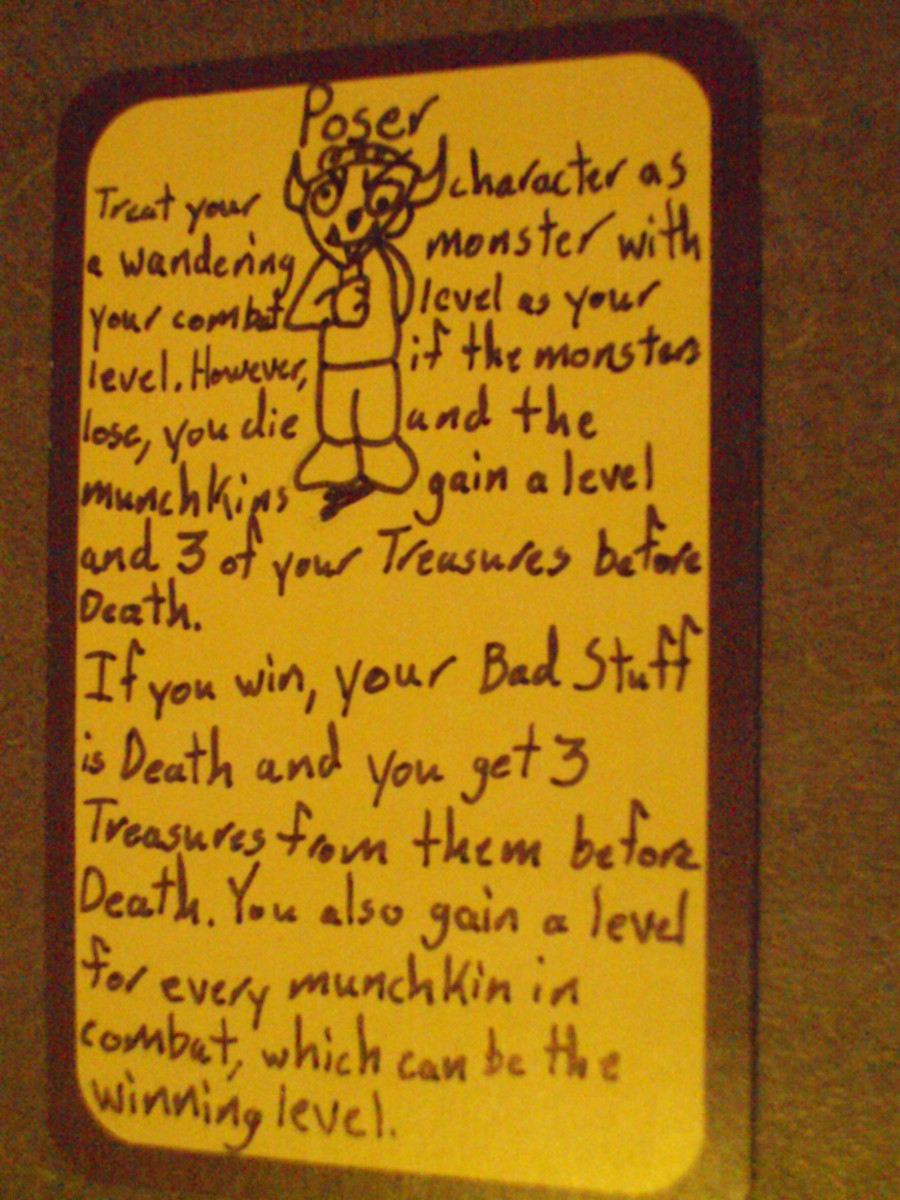 Poser
Treat your character as
a wandering monster with
your combat level as your
level. However, if the monsters
lose, you die and the
munchkins gain a level
and 3 of your Treasures before
Death.
If you win, your Bad Stuff
is Death and you get 3
Treasures from them before
Death. You also gain a level
for every munchkin in
combat, which can be the
winning level.